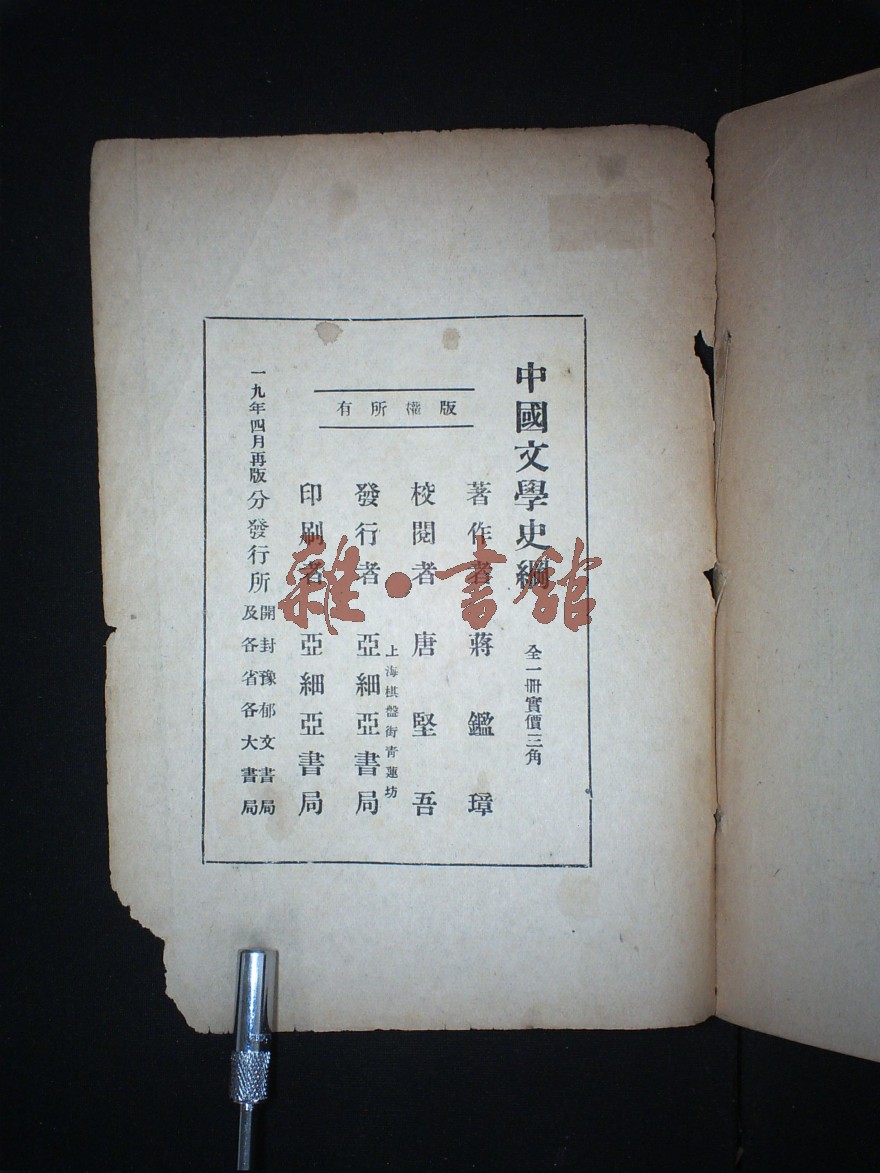 中國文學史綱
全一册實價三角
版權所有
著作者 蔣鑑璋
校閱者 唐堅吾
上海棋盤街青蓮坊
發行者 亞細亞書局
印刷者 亞細亞書局
一九年四月再版
分發行所
開封豫郁文書局
及各省各大書局
雜·書館